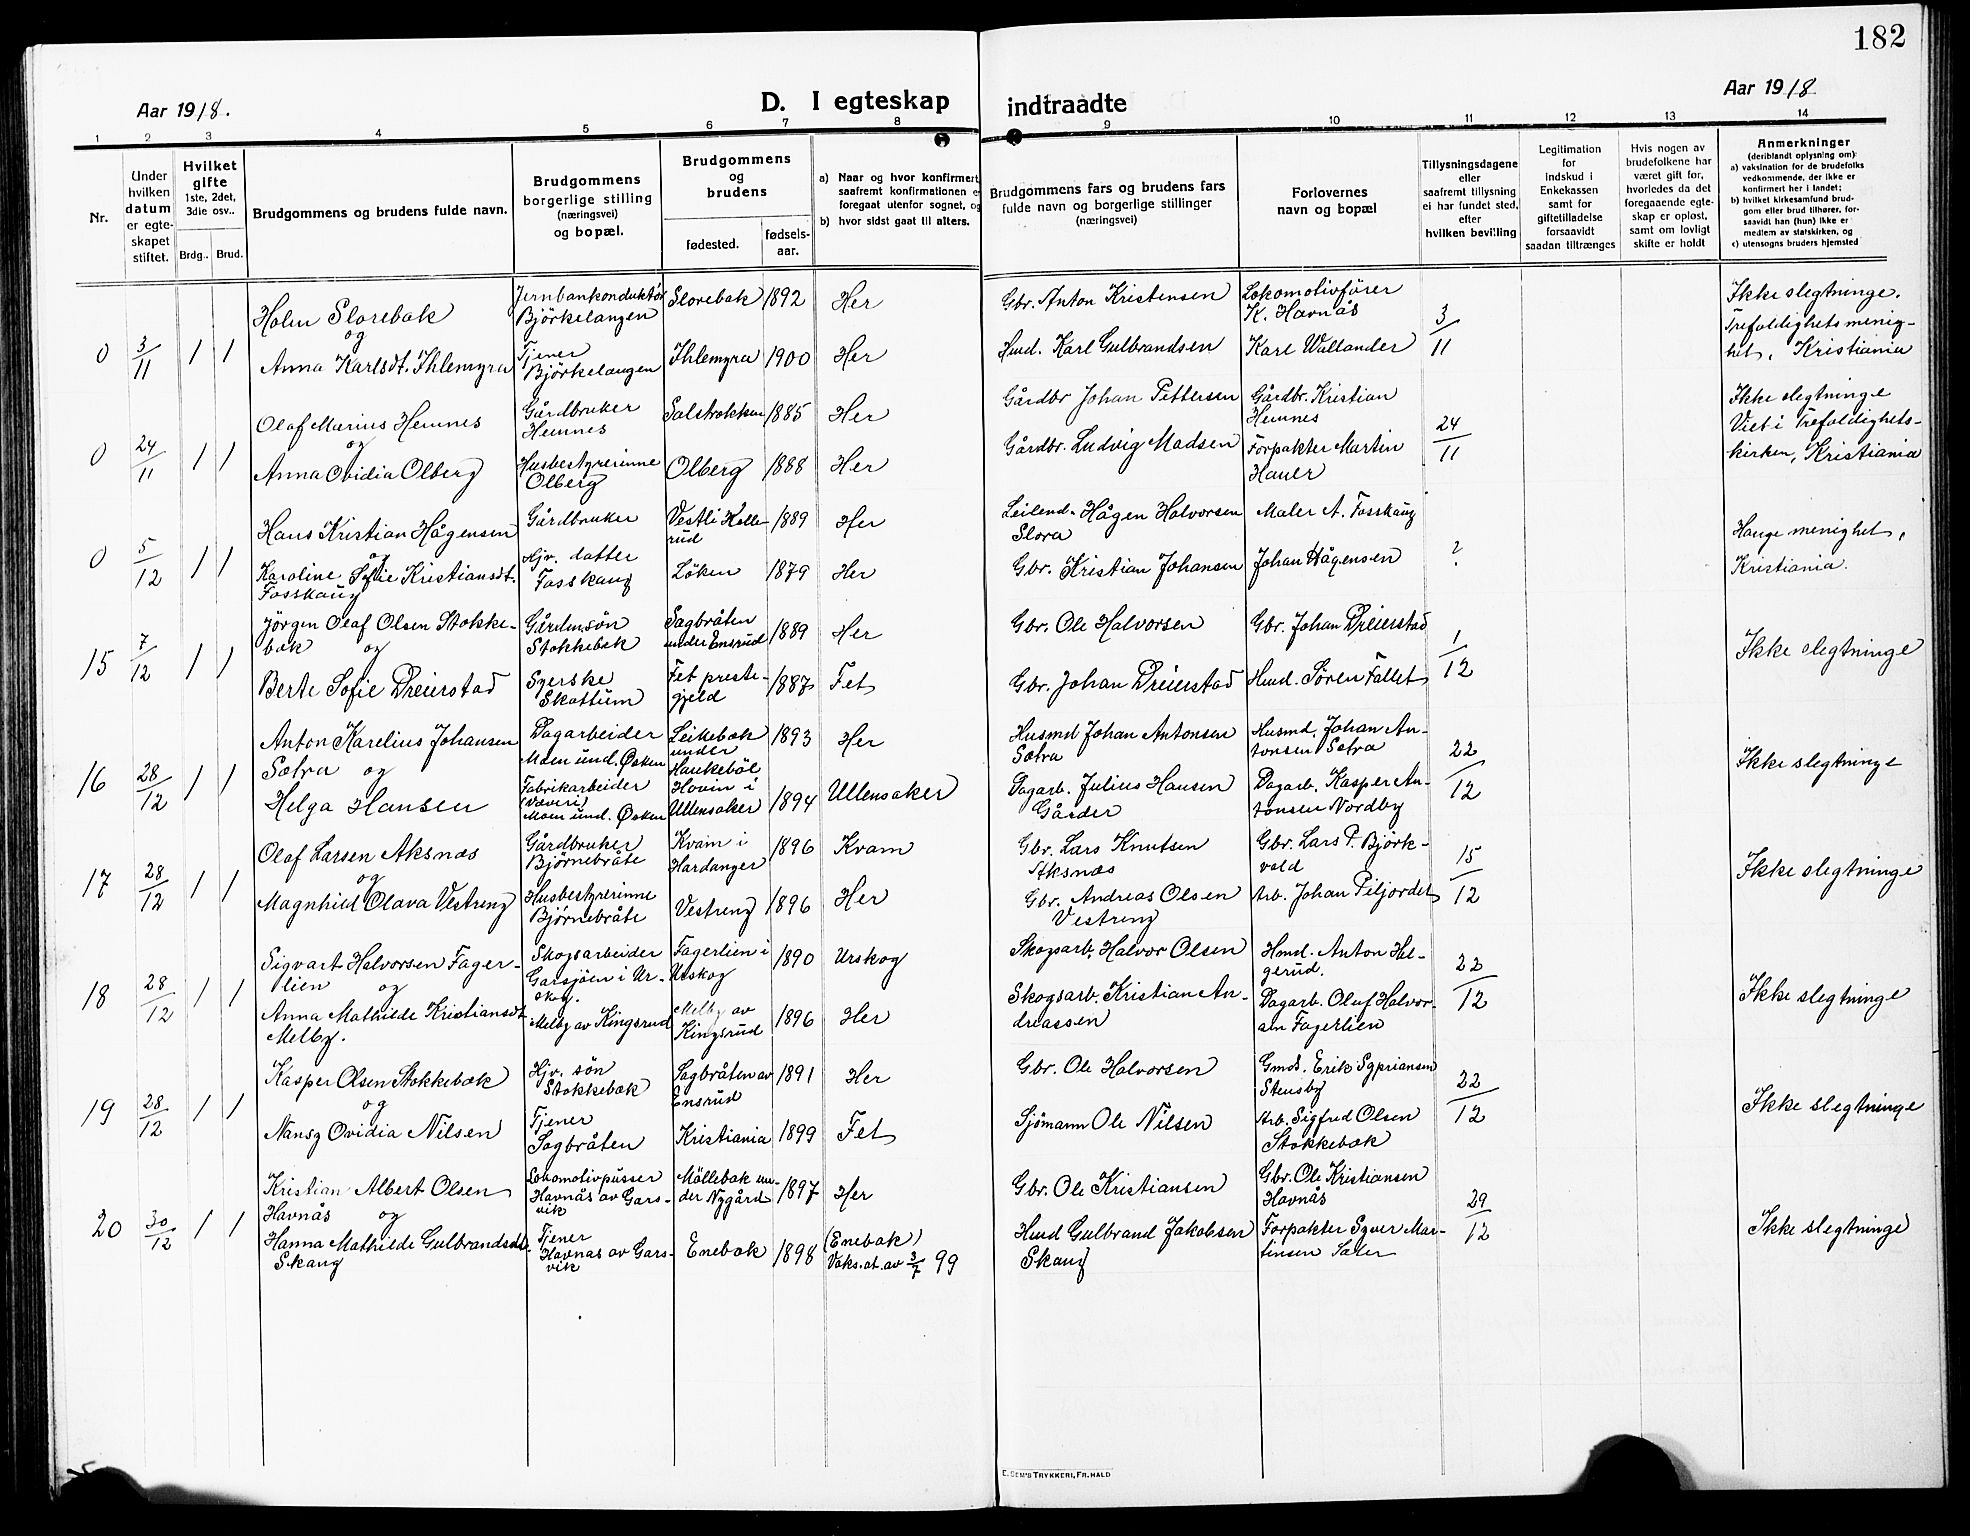 182
Aar 1918.
D. I egteskap indtraadte
Aar 1918
1 2 3 4 5 6 7 8 9 10 11 12 13 14
Nr.
Under hvilken datum er egteskapet stiftet.
Hvilket gifte 1ste, 2det, 3die osv..
Brdg..
Brud.
Brudgommens og brudens fulde navn.
Brudgommens borgerlige stilling (næringsvei) og bopæl.
Brudgommens og brudens
fødested.
fødselsaar.
a) Naar og hvor konfirmert,
saafremt konfirmationen e
foregaat utenfor sognet, og
b) hvor sidst gaat til alters.
Brudgommens fars og brudens fars fulde navn og borgerlige stillinger (næringsvei)
Forlovernes navn og bopæl
Tillysningsdagene eller saafremt tillysning ei har fundet sted, efter hvilken bevilling
Legitimation for Indskud i Enkekassen samt for giftetilladelse forsaavidt saadan tiltrænges
Hvis nogen av brudefolkene har været gift før, hvorledes da det foregaaende egteskap er opløst, samt om lovligt skifte er holdt
Anmerkninger
(deriblandt oplysning om):
a) vaksination for de brudefolks vedkommende, der ikke er konfirmert her i landet;
b) hvilket kirkesamfund brudgom eller brud tilhører, forsaavidt han (hun) ikke er medlem av statskirken, og
c) utensogns bruders hjemsted
0 3/11 1 1
Holm Slorebæk
og
Anna Karlsdt. Ihlemyra
Jernbankonduktør
Björkelangen
Tjener
Björkelangen
Slorebæk 1892 Her
Ihlemyra 1900 Her
Gbr. Anton Kristensen
Hmd. Karl Gulbrandsen
Lokomotivfører
K. Havnås
Karl Wallander
3/11
Ikke slegtninge.
Trefoldighets menig-
het, Kristiania
0 24/11 1 1
Olaf Marius Hemnes
og
Anna Ovidia Olberg
Gårdbruker
Hemnes
Husbestyrerinne
Olberg
1885 Her
Olberg 1888 Her
Gårdbr Johan Pettersen
Gårdbr. Ludvig Madsen
Gårdbr. Kristian
Hemnes
Forpakter Martin
Hauer
24/11
Ikke slegtninge
Viet i Trefoldighets-
kirken, Kristiania
0 5/12 1 1
Hans Kristian Hågensen
og
Karoline Sofie Kristiansdt.
Fosskaug
Gårdbruker
Hjv. datter
Fosskaug
Vestli Kolle-
rud
1889 Her
Løken 1879 Her
Leilend. Hågen Halvorsen
Slora
Gbr. Kristian Johansen
Maler A. Fosskaug
Johan Hågensen
?
Hauge menighet,
Kristiania.
15 7/12 1 1
Jörgen Olaf Olsen Stokke-
bæk og
Berte Sofie Dreierstad
Gårdmsön
Stokkebæk
Syerske
Skattum
Sagbråten
under Ensrud
1889 Her
Fet preste-
gjeld
1887 Fet
Gbr. Ole Halvorsen
Gbr. Johan Dreierstad
Gbr. Johan Dreierstad
Hmd. Sören Fallet
1/12
Ikke slegtninge
16 28/12 1 1
Anton Karelius Johansen
Sætra og
Helga Hansen
Dagarbeider
Moen und. Ösken
Fabrikarbeider
(Væveri)
Moen und. Ösken
Leikebæk
under
Haukeböl
1893 Her
Hovin i
Ullensaker
1894 Ullensaker
Husmd Johan Antonsen
Sætra
Dagarb. Julius Hansen
Gårder
Husmd. Johan An-
tonsen Sætra
Dagarb. Kasper An-
tonsen Nordby
22/12
Ikke slegtninge
17 28/12 1 1
Olaf Larsen Aksnæs
og
Magnhild Olava Vestreng
Gårdbruker
Björnebråte
Husbestyrerinne
Björnebråte
Kvam i
Hardanger
1896 Kvam
Vestreng 1896 Her
Gbr. Lars Knutsen
Aksnæs
Gbr. Andreas Olsen
Vestreng
Gbr. Lars P. Björk-
vold
Arb. Johan Piljordet
15/12
Ikke slegtninge
18 28/12 1 1
Sigvart Halvorsen Fager-
lien og
Anna Mathilde Kristiansdt
Melby.
Skogsarbeider
Garsjöen i Ur-
skog.
Melby av Kingsrud
Fagerlien i
Urskog
1890 Urskog
Melby av
Kingsrud
1896 Her
Skogsarb. Halvor Olsen
Skogsarb. Kristian An-
dreassen
Hmd. Anton Hel-
gerud.
Dagarb. Oluf Halvor-
sen Fagerlien
22/12
Ikke slegtninge
19 28/12 1 1
Kasper Olsen Stokkebæk
og
Nansy Ovidia Nilsen
Hjv. sön
Stokkebæk
Tjener
Sagbråten
Sagbråten av
Ensrud
1891 Her
Kristiania 1899 Fet
Gbr. Ole Halvorsen
Sjömann Ole Nilsen
Gmd. Erik Sypriansen
Stensby
Arb. Sigfred Olsen
Stokkebæk
22/12
Ikke slegtninge
20 30/12 1 1
Kristian Albert Olsen
Havnås og
Hanna Mathilde Gulbrandsdt.
Skaug
Lokomotivpusser
Havnås av Gars-
vik
Tjener
Havnås av Gars-
vik
Möllebæk un-
der Nygård
1897 Her
Enebak 1898
(Enebak)
Vaks.at. av 3/7 99
Gbr. Ole Kristiansen
Hmd Gulbrand Jakobsen
Skaug
Gbr. Ole Kristiansen
Havnås
Forpakter Syver Mar-
tinsen
29/12
Ikke slegtninge
E. SEM'S TRYKKERI, FR.HALD